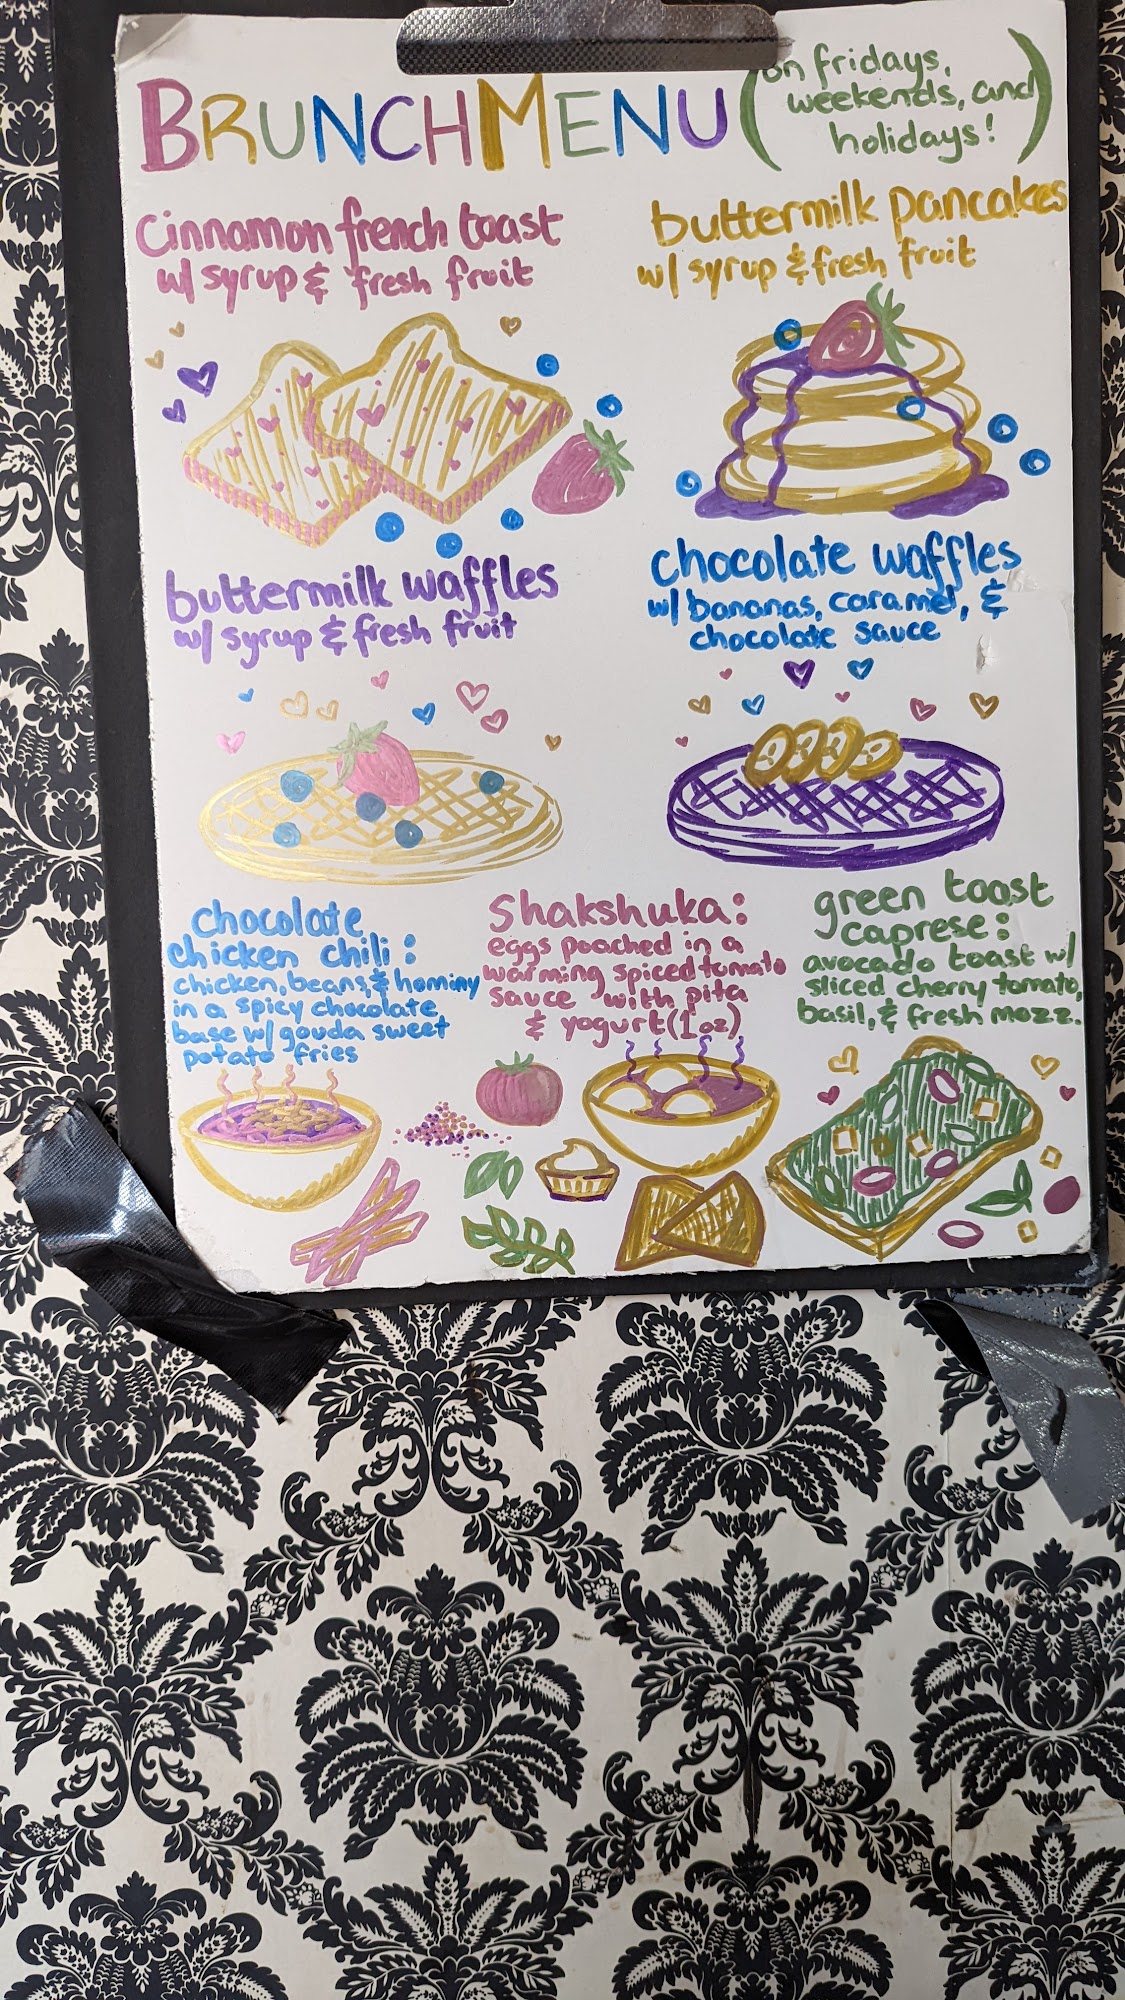 BRUNCH MENU (on fridays,
weekends, and
holidays!)
cinnamon french toast
w/ syrup & fresh fruit
buttermilk pancakes
w/ syrup & fresh fruit
buttermilk waffles
w/ syrup & fresh fruit
chocolate waffles
w/ bananas, caramel, &
chocolate sauce
chocolate
chicken chili:
chicken, beans, & hominy
in a spicy chocolate
base w/ gouda sweet
potato fries
Shakshuka:
eggs poached in a
warming spiced tomato
sauce with pita
& yogurt (1 oz)
green toast
caprese:
avocado toast w/
sliced cherry tomato,
basil, & fresh mozz.